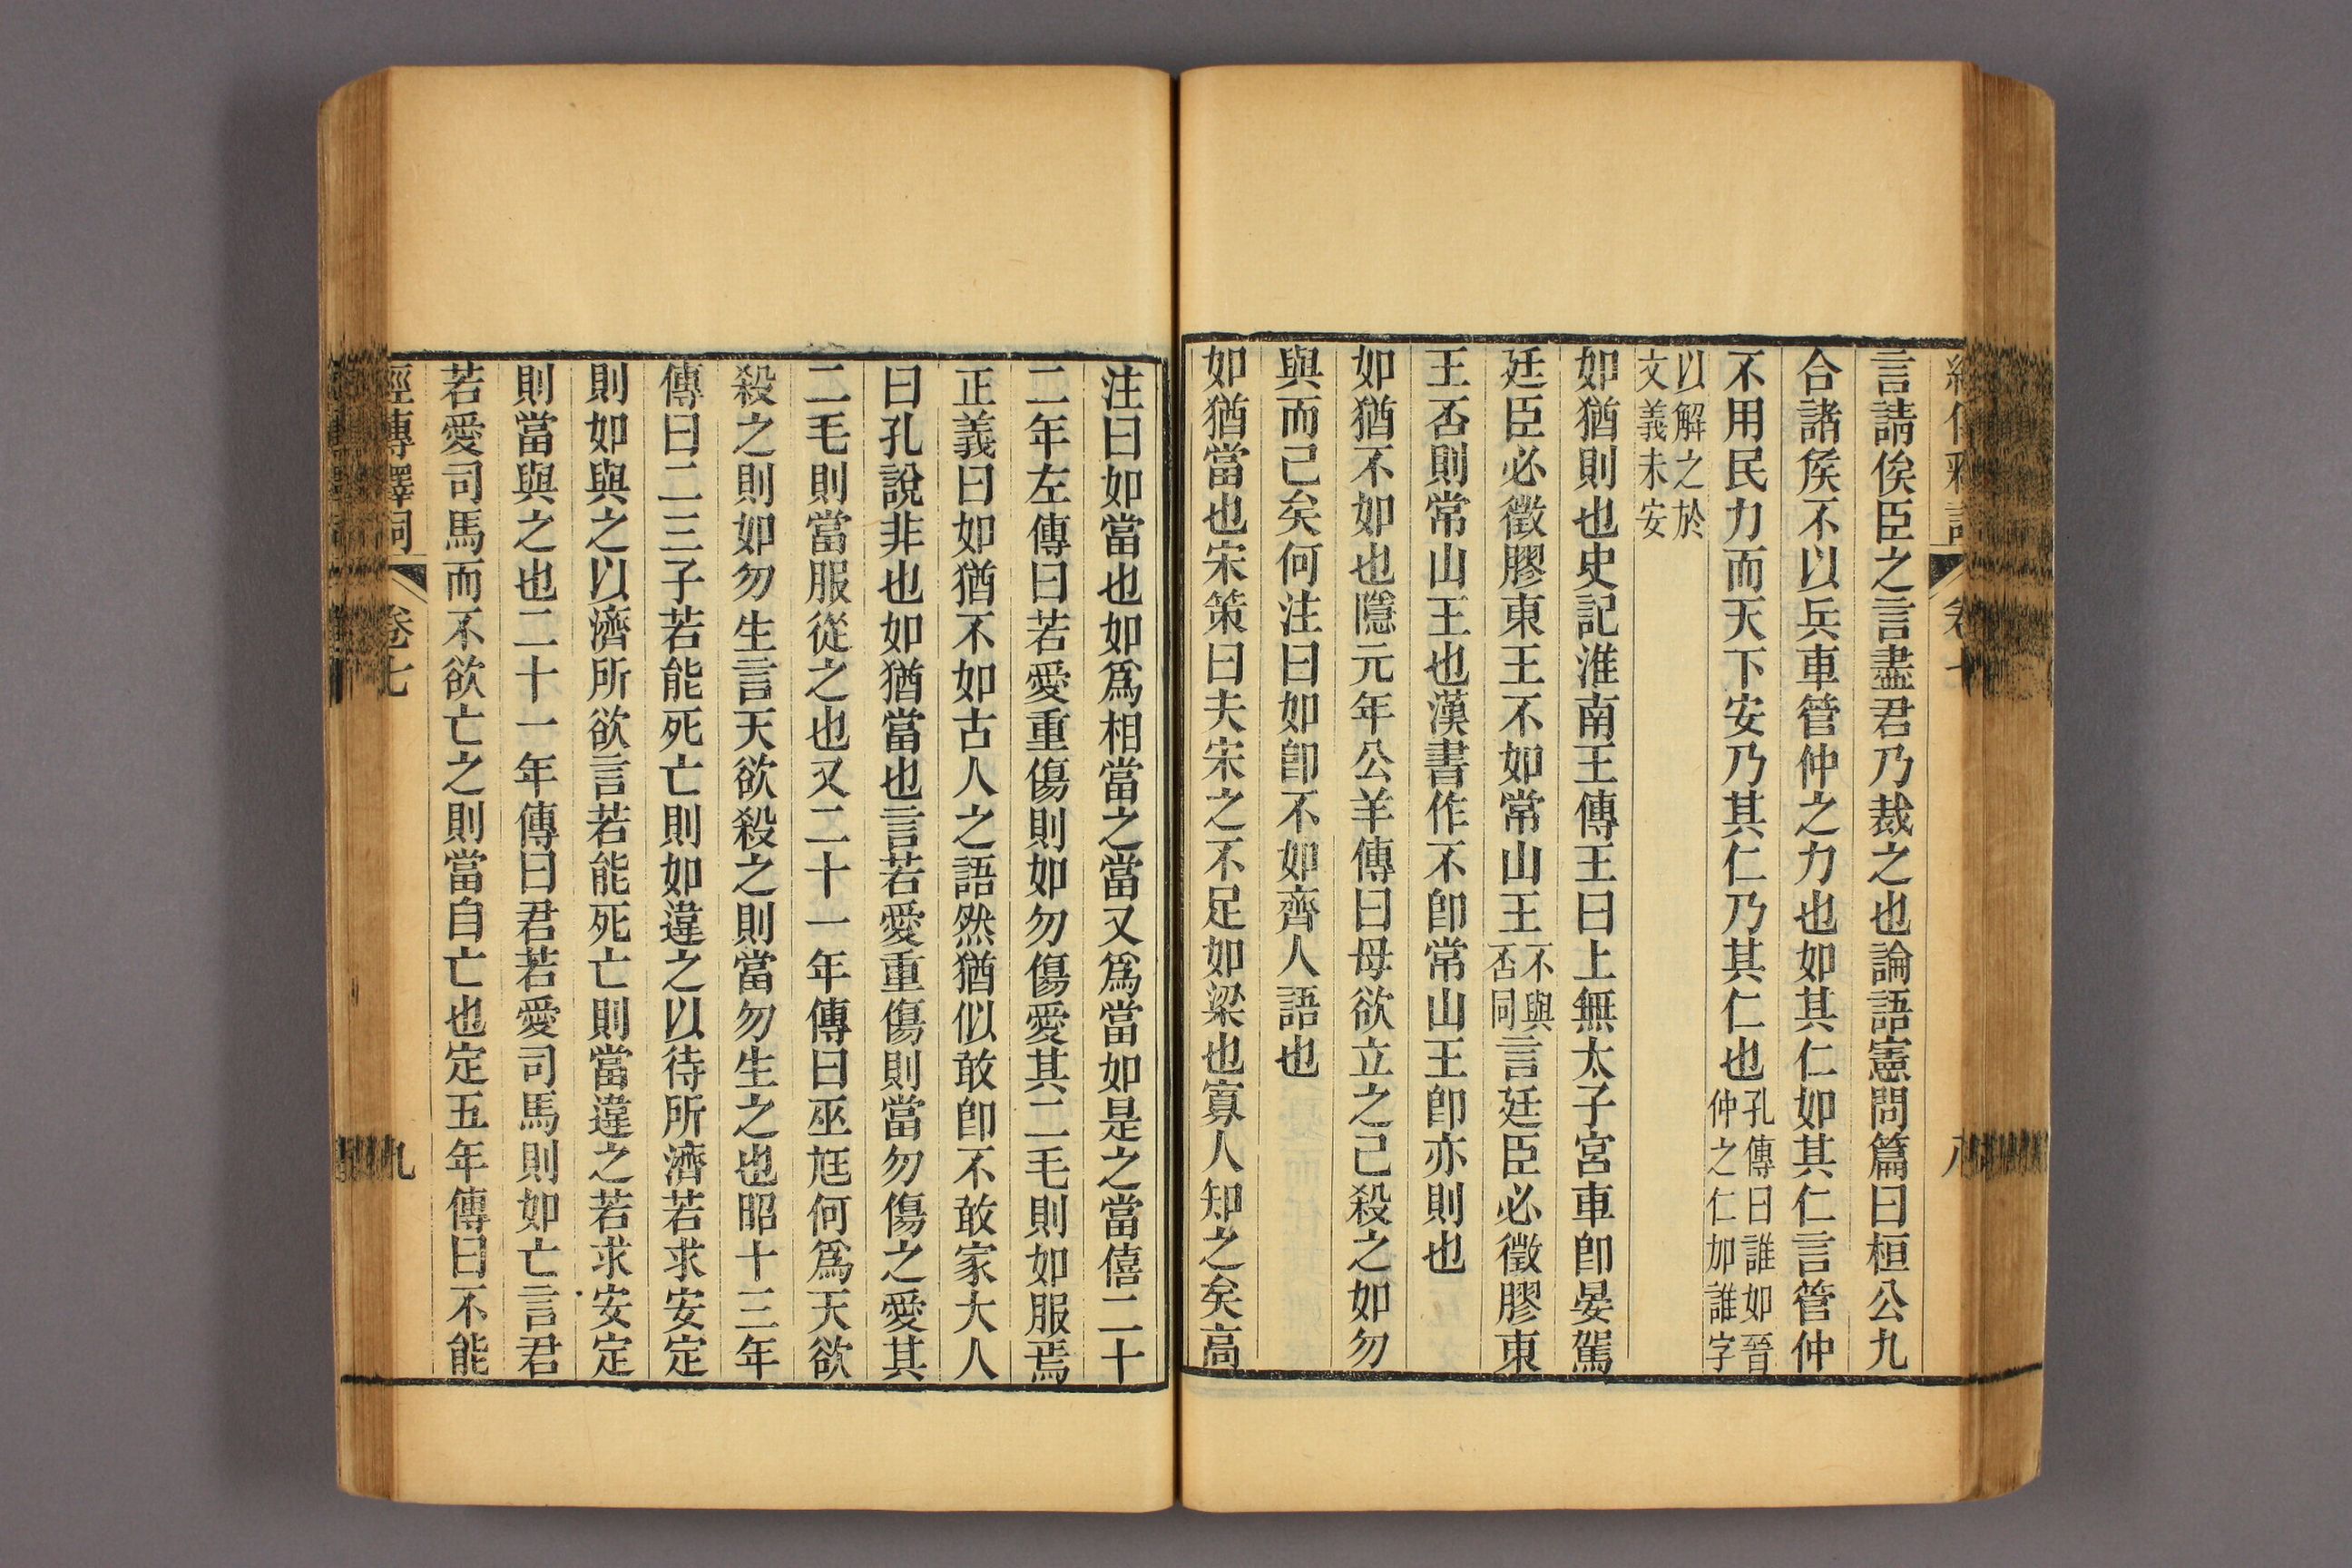 言請俟臣之言盡君乃裁之也論語憲問篇曰桓公九
合諸矦不以兵車管仲之力也如其仁如其仁言管仲
不用民力而天下安乃其仁乃其仁也孔傳曰誰如晉
仲之仁加誰字
以解之於
文義未安
如猶則也史記淮南王傳王曰上無太子宮車卽晏駕
廷臣必徵膠東王不如常山王不與
否同言廷臣必徵膠東
王否則常山王也漢書作不卽常山王卽亦則也
如猶不如也隱元年公羊傳曰母欲立之己殺之如勿
與而已矣何注曰如卽不如齊人語也
如猶當也宋策曰夫宋之不足如梁也寡人知之矣高
注曰如當也如爲相當之當又爲當如是之當僖二十
二年左傳曰若愛重傷則如勿傷愛其二毛則如服焉
正義曰如猶不如古人之語然猶似敢卽不敢家大人
曰孔說非也如猶當也言若愛重傷則當勿傷之愛其
二毛則當服從之也又二十一年傳曰巫尪何爲天欲
殺之則如勿生言天欲殺之則當勿生之也昭十三年
傳曰二三子若能死亡則如違之以待所濟若求安定
則如與之以濟所欲言若能死亡則當違之若求安定
則當與之也二十一年傳曰君若愛司馬則如亡言君
若愛司馬而不欲亡之則當自亡也定五年傳曰不能
經傳釋詞
卷七
九